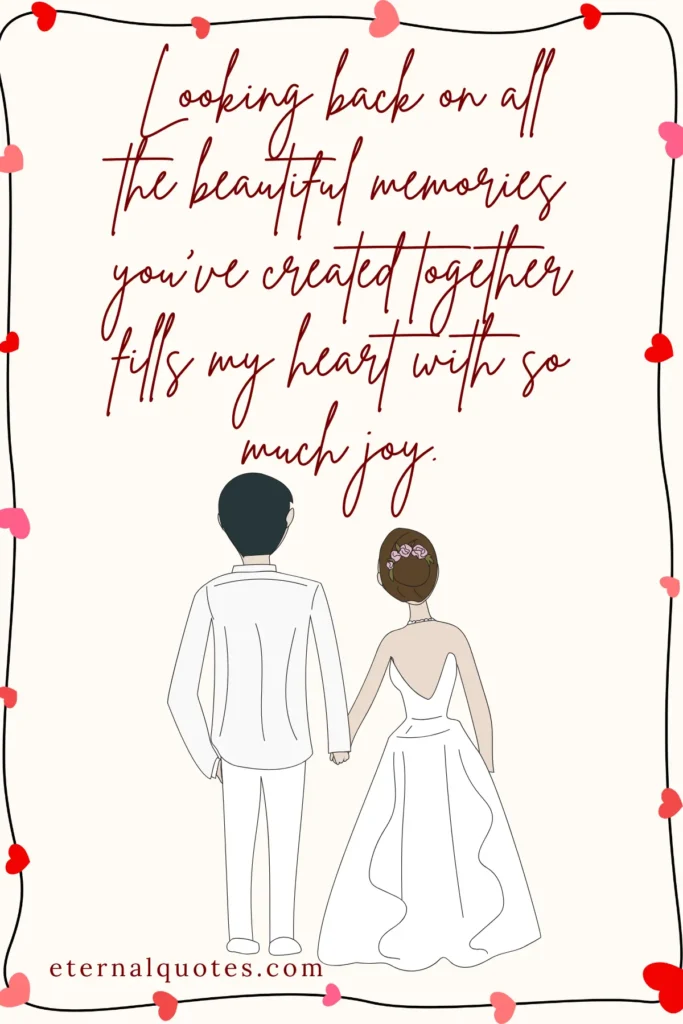 Looking back on all
the beautiful memories
you've created together
fills my heart with so
much joy.
eternalquotes.com